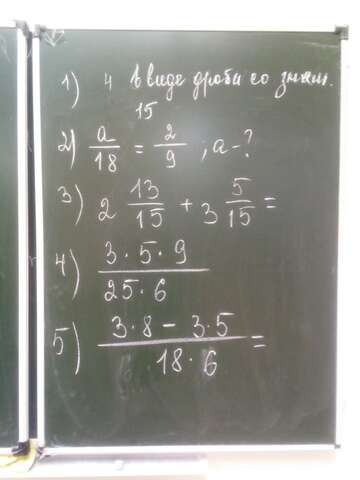 1) 4 в виде дроби со знам.
15
2) a/18 = 2/9 ; a-?
3) 2 13/15 + 3 5/15 =
4) 3·5·9 / 25·6
5) 3·8 - 3·5 / 18·6 =